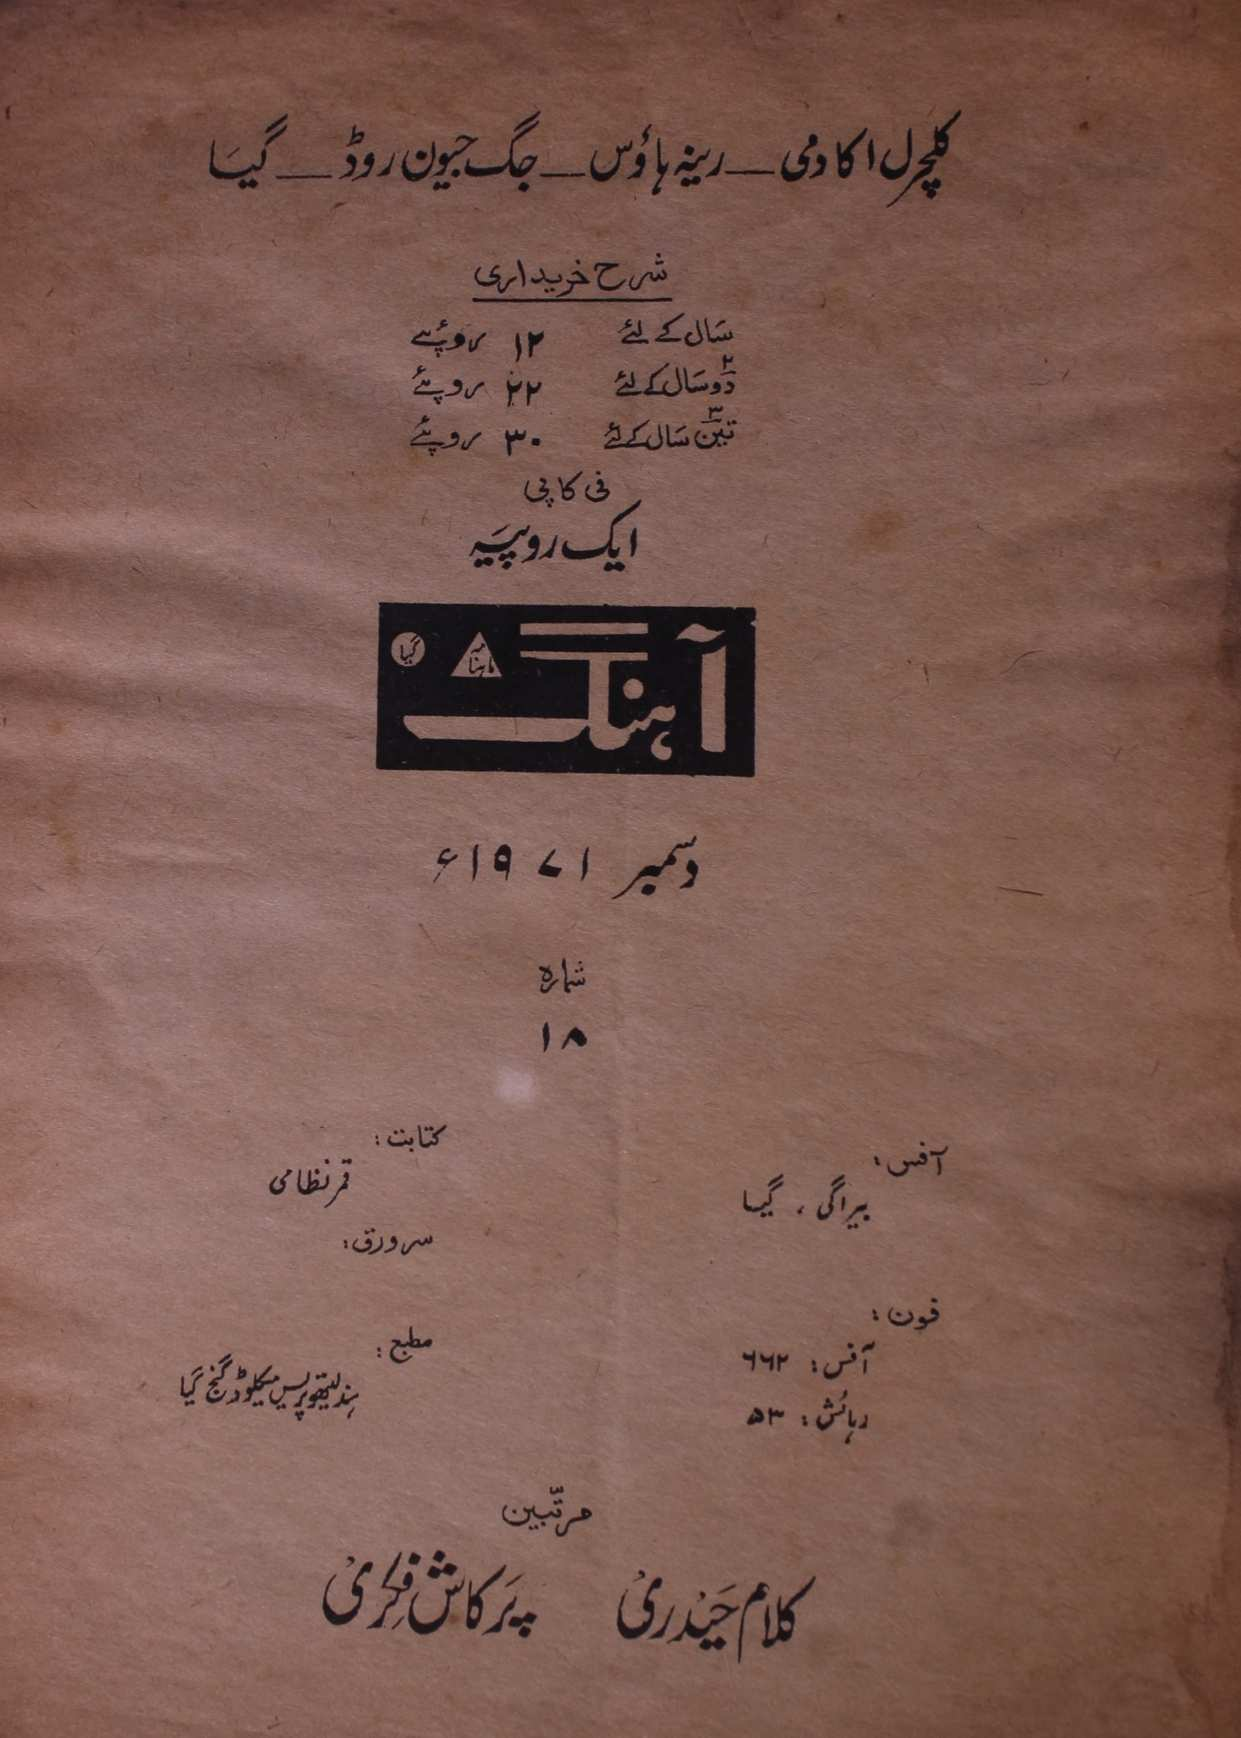 کلچرل اکادمی — رینہ ہاؤس — جگ جیون روڈ — گیا
شرح خریداری
سال کے لئے ۱۲ روپئے
۲ دو سال کے لئے ۲۲ روپئے
۳ تین سال کے لئے ۳۰ روپئے
فی کاپی
ایک روپیہ
آہنگ ماہنامہ گیا
دسمبر ۱۹۷۱ء
شمارہ
۱۸
آفس:
بیراگی ، گیا
فون:
آفس: ۶۶۲
رہائش: ۵۳
کتابت:
قمر نظامی
سرورق:
مطبع:
ہند لیتھو پریس میکلوڈ گنج گیا
مرتبین
کلام حیدری پرکاش فکری